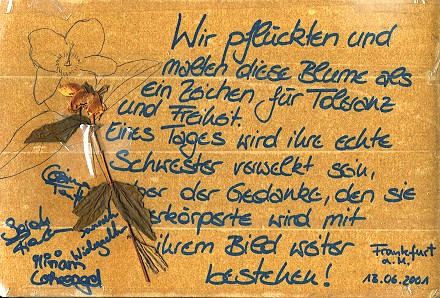 Wir pflückten und
malten diese Blume als
ein Zeichen für Toleranz
und Freiheit.
Eines Tages wird ihre echte
Schwester verwelkt sein,
aber der Gedanke, den sie
verkörperte wird mit
ihrem Bild weiter
bestehen!
Sarah
Miriam
Frankfurt
a.M.
18.06.2001